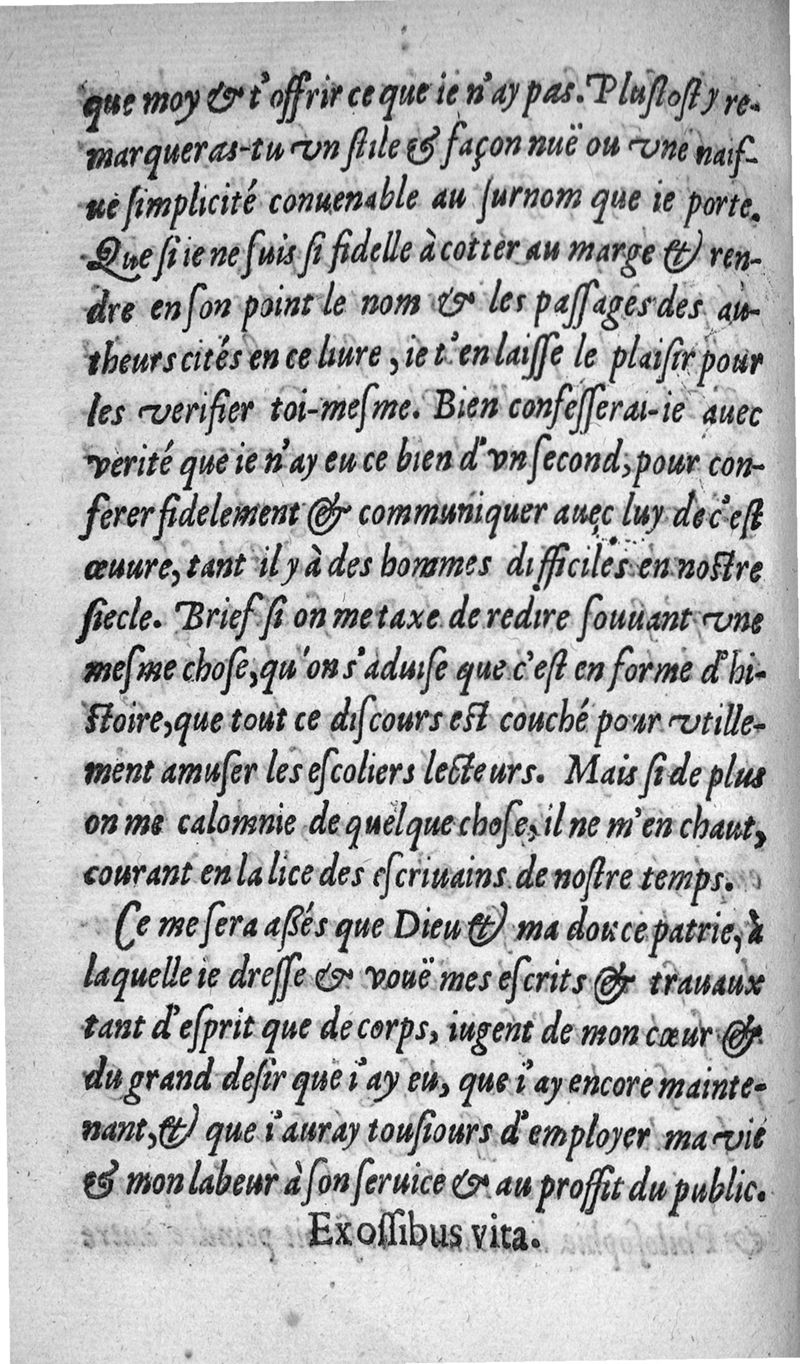 que moy & t'offrir ce que ie n'ay pas. Plustost y re-
marqueras-tu vn stile & façon nuë ou vne naif-
ue simplicité conuenable au surnom que ie porte.
Que si ie ne suis si fidelle à cotter au marge & ren-
dre en son point le nom & les passages des au-
theurs cités en ce liure, ie t'en laisse le plaisir pour
les verifier toi-mesme. Bien confesserai-ie auec
verité que ie n'ay eu ce bien d'vn second, pour con-
ferer fidelement & communiquer auec luy de c'est
œuure, tant il y à des hommes difficiles en nostre
siecle. Brief si on me taxe de redire souuant vne
mesme chose, qu'on s'aduise que c'est en forme d'hi-
stoire, que tout ce discours est couché pour vtille-
ment amuser les escoliers lecteurs. Mais si de plus
on me calomnie de quelque chose, il ne m'en chaut,
courant en la lice des escriuains de nostre temps.
Ce me sera aßés que Dieu & ma douce patrie, à
laquelle ie dresse & vouë mes escrits & trauaux
tant d'esprit que de corps, iugent de mon cœur &
du grand desir que i'ay eu, que i'ay encore mainte-
nant, & que i'auray tousiours d'employer ma vie
& mon labeur à son seruice & au proffit du public.
Ex ossibus vita.